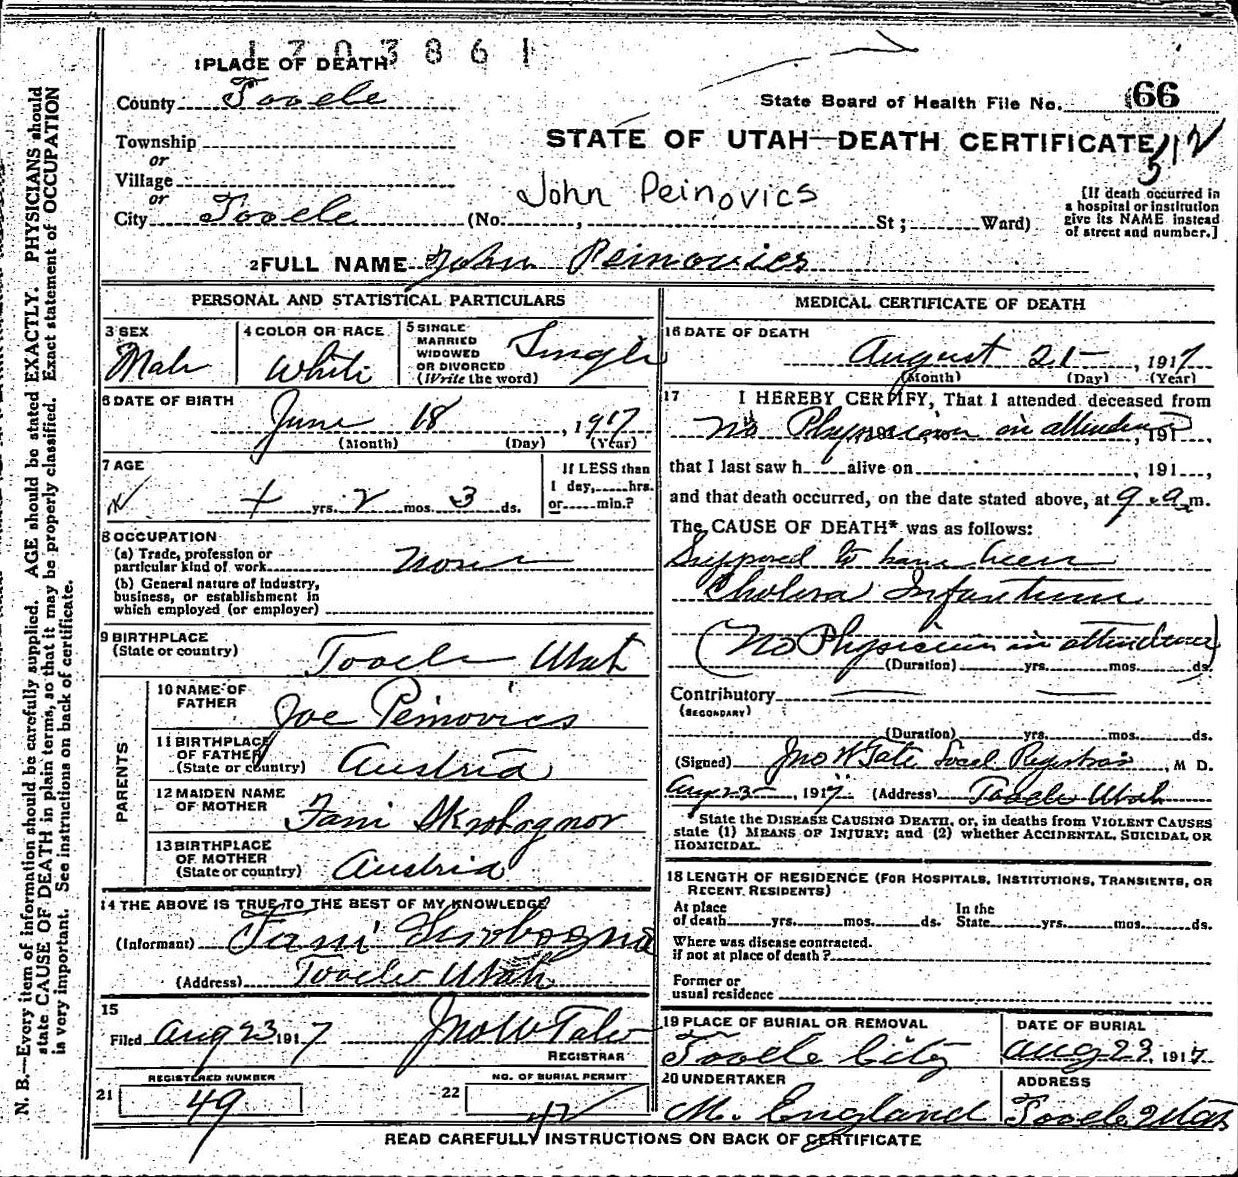 1703861
1 PLACE OF DEATH
County Tooele
State Board of Health File No. 66
Township
STATE OF UTAH—DEATH CERTIFICATE
or
Village
or
John Peinovics
[If death occurred in
a hospital or institution
give its NAME instead
of street and number.]
City Tooele (No. , St ; Ward)
2 FULL NAME John Peinovics
PERSONAL AND STATISTICAL PARTICULARS
3 SEX
Male
4 COLOR OR RACE
White
5 SINGLE
MARRIED
WIDOWED
OR DIVORCED
(Write the word)
Single
6 DATE OF BIRTH
June 18, 1917
(Month) (Day) (Year)
7 AGE
yrs. 2 mos. 3 ds.
If LESS than
1 day, hrs.
or min.?
8 OCCUPATION
(a) Trade, profession or
particular kind of work None
(b) General nature of industry,
business, or establishment in
which employed (or employer)
9 BIRTHPLACE
(State or country) Tooele Utah
PARENTS
10 NAME OF
FATHER Joe Peinovics
11 BIRTHPLACE
OF FATHER
(State or country) Austria
12 MAIDEN NAME
OF MOTHER Fani
13 BIRTHPLACE
OF MOTHER
(State or country) Austria
14 THE ABOVE IS TRUE TO THE BEST OF MY KNOWLEDGE
(Informant) Fani
(Address) Tooele Utah
15
Filed Aug 23 1917 Jno W Tate
REGISTRAR
21 REGISTERED NUMBER
49
22 NO. OF BURIAL PERMIT
42
MEDICAL CERTIFICATE OF DEATH
16 DATE OF DEATH
August 21, 1917
(Month) (Day) (Year)
17 I HEREBY CERTIFY, That I attended deceased from
No Physician in attendance, 191 ,
that I last saw h alive on , 191 ,
and that death occurred, on the date stated above, at 9 a m.
The CAUSE OF DEATH* was as follows:
Supposed to have been
Cholera Infantum
(No Physician in attendance)
(Duration) yrs. mos. ds.
Contributory
(SECONDARY)
(Duration) yrs. mos. ds.
(Signed) Jno W Tate Local Registrar, M D.
Aug 23, 1917 (Address) Tooele Utah
*State the DISEASE CAUSING DEATH, or, in deaths from VIOLENT CAUSES
state (1) MEANS OF INJURY; and (2) whether ACCIDENTAL, SUICIDAL OR
HOMICIDAL.
18 LENGTH OF RESIDENCE (FOR HOSPITALS, INSTITUTIONS, TRANSIENTS, OR
RECENT RESIDENTS)
At place
of death yrs. mos. ds.
In the
State yrs. mos. ds.
Where was disease contracted.
if not at place of death?
Former or
usual residence
19 PLACE OF BURIAL OR REMOVAL
Tooele City
DATE OF BURIAL
Aug 23, 1917
20 UNDERTAKER
M. England
ADDRESS
Tooele Utah
READ CAREFULLY INSTRUCTIONS ON BACK OF CERTIFICATE
N. B.—Every item of information should be carefully supplied. AGE should be stated EXACTLY. PHYSICIANS should
state CAUSE OF DEATH in plain terms, so that it may be properly classified. Exact statement of OCCUPATION
is very important. See instructions on back of certificate.